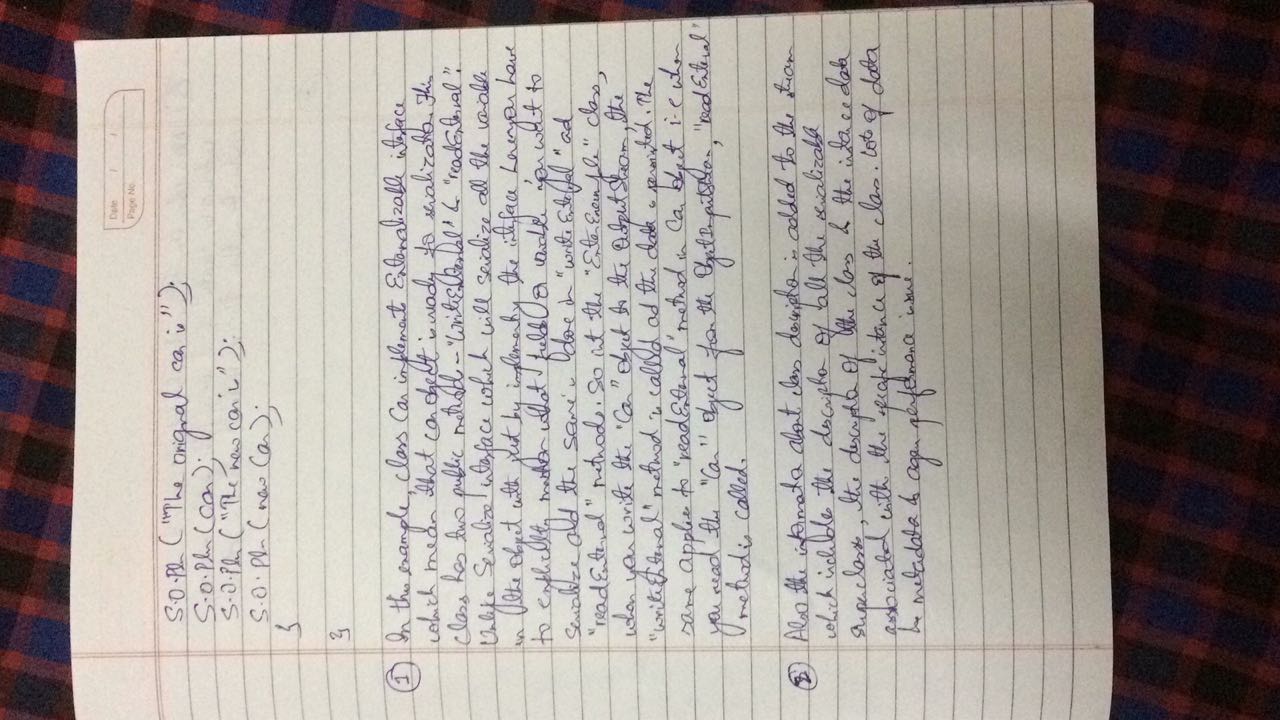 Date / /
Page No.
S.O.Pln ("The original car is");
S.O.Pln (car);
S.O.Pln ("The new car is");
S.O.Pln (new Car);
}
}
① In this example, class Car implements Externalizable interface
which mean that car object is ready for serialization. This
class has two public methods - "writeExternal" & "readExternal".
Unlike Serialize interface which will serialize all the variable
in the object with just by implementing the interface, here you have
to explicitly mention what fields or variable you want to
serialize and the same is done in "writeExternal" and
"readExternal" methods. So int the "ExternExample" class,
when you write the "Car" object to the OutputStream, the
"writeExternal" method is called and the data is persisted. The
same applies to "readExternal" method in Car object i.e when
you read the "Car" object from the ObjectInputStream, "readExternal"
method is called.
② Also the information about class description is added to the stream
which includes the description of all the serializable
superclasses, the description of the class & the instance data
associated with the specific instance of the class. Lots of data
& metadata & again performance issue.